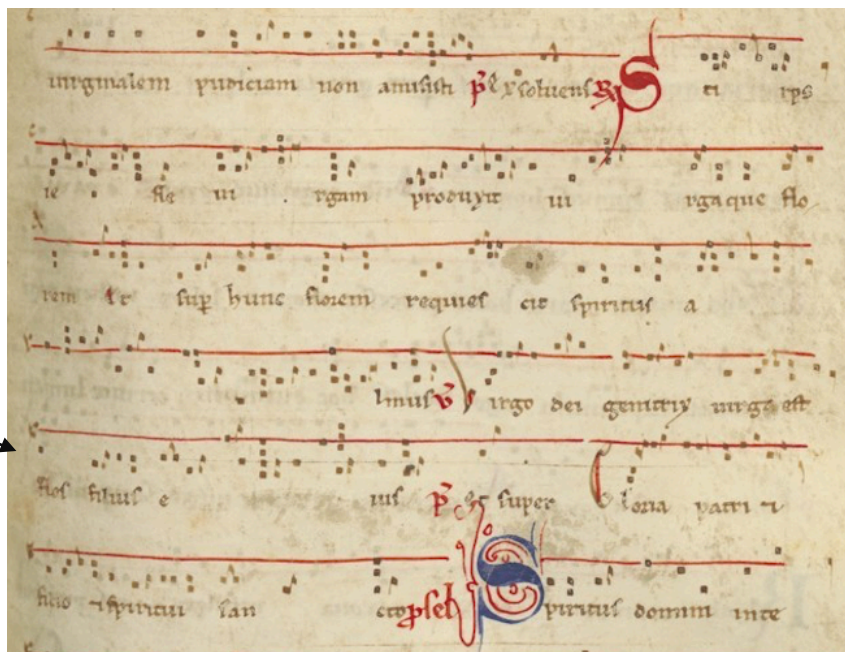 uirginalem pudiciam non amisisti p̄ Exsoluens R̄ Sti rps
ie sse ui rgam produxit ui rgaque flo
rem Et sup hunc florem requies cit spiritus a
lmus V̄ Virgo dei genitrix uirga est
flos filius e ius p̄ Et super Gloria patri ⁊
filio ⁊ spiritui san cto p̄ Spiritus domini inte